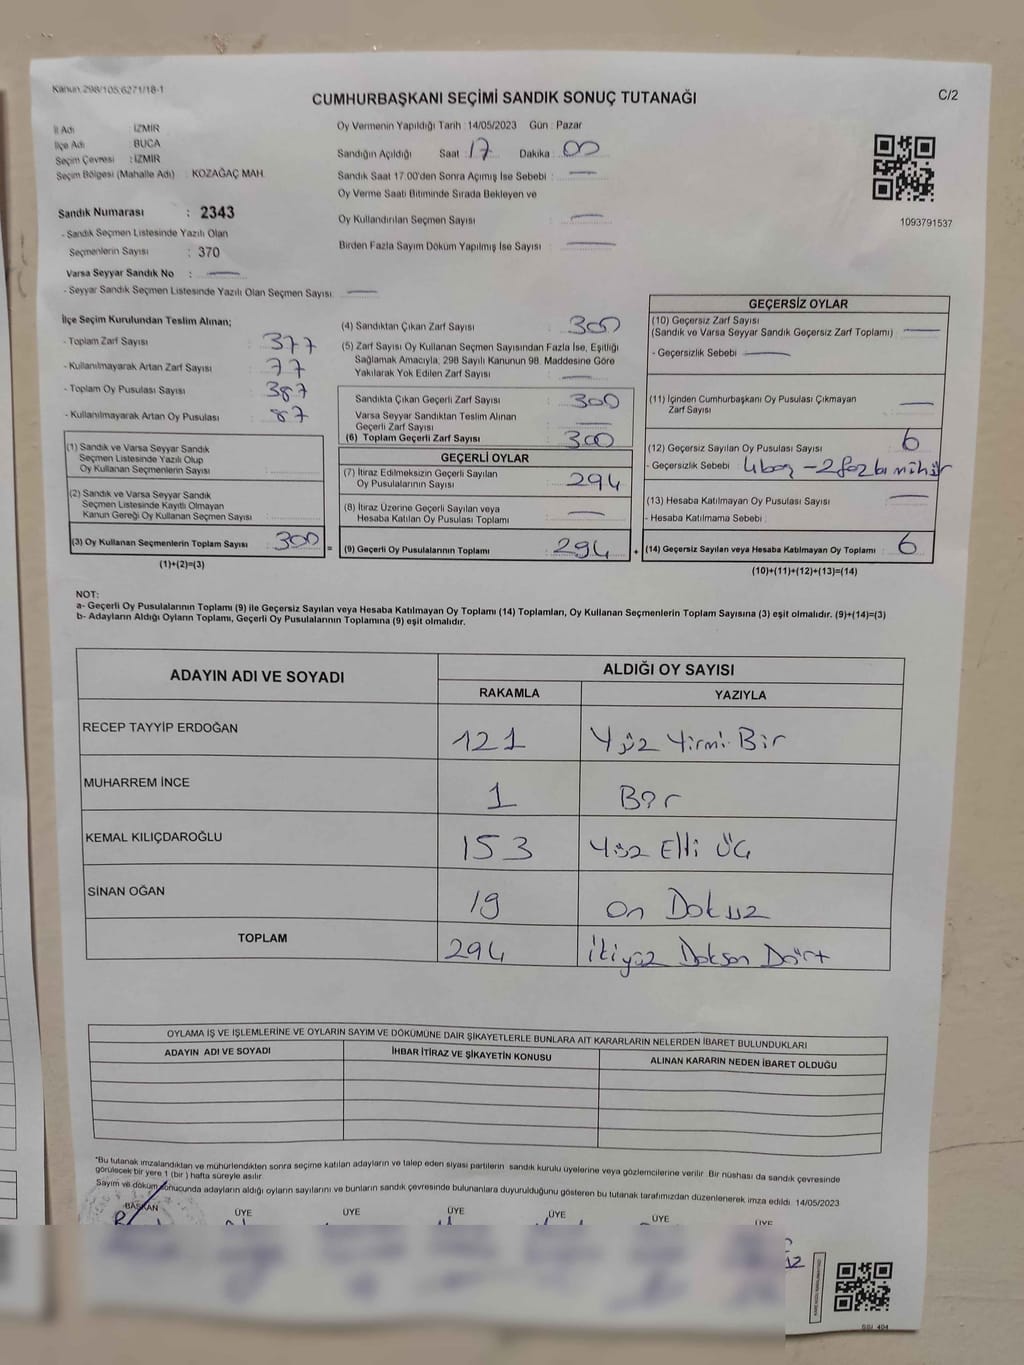 Kanun.298/105;6271/18-1
CUMHURBAŞKANI SEÇİMİ SANDIK SONUÇ TUTANAĞI
C/2
İl Adı : İZMİR
İlçe Adı : BUCA
Seçim Çevresi : İZMİR
Seçim Bölgesi (Mahalle Adı) : KOZAĞAÇ MAH.
Oy Vermenin Yapıldığı Tarih : 14/05/2023 Gün : Pazar
Sandığın Açıldığı Saat : 17 Dakika : 00
Sandık Saat 17:00'den Sonra Açımış İse Sebebi : —
Oy Verme Saati Bitiminde Sırada Bekleyen ve
Oy Kullandırılan Seçmen Sayısı —
Birden Fazla Sayım Döküm Yapılmış İse Sayısı : —
1093791537
Sandık Numarası : 2343
- Sandık Seçmen Listesinde Yazılı Olan
Seçmenlerin Sayısı : 370
Varsa Seyyar Sandık No : —
- Seyyar Sandık Seçmen Listesinde Yazılı Olan Seçmen Sayısı : —
İlçe Seçim Kurulundan Teslim Alınan;
- Toplam Zarf Sayısı : 377
- Kullanılmayarak Artan Zarf Sayısı : 77
- Toplam Oy Pusulası Sayısı : 387
- Kullanılmayarak Artan Oy Pusulası : 87
(1) Sandık ve Varsa Seyyar Sandık
Seçmen Listesinde Yazılı Olup
Oy Kullanan Seçmenlerin Sayısı :
(2) Sandık ve Varsa Seyyar Sandık
Seçmen Listesinde Kayıtlı Olmayan
Kanun Gereği Oy Kullanan Seçmen Sayısı :
(3) Oy Kullanan Seçmenlerin Toplam Sayısı : 300
(1)+(2)=(3)
(4) Sandıktan Çıkan Zarf Sayısı : 300
(5) Zarf Sayısı Oy Kullanan Seçmen Sayısından Fazla İse, Eşitliği
Sağlamak Amacıyla, 298 Sayılı Kanunun 98. Maddesine Göre
Yakılarak Yok Edilen Zarf Sayısı : —
Sandıkta Çıkan Geçerli Zarf Sayısı : 300
Varsa Seyyar Sandıktan Teslim Alınan
Geçerli Zarf Sayısı : —
(6) Toplam Geçerli Zarf Sayısı : 300
GEÇERLİ OYLAR
(7) İtiraz Edilmeksizin Geçerli Sayılan
Oy Pusulalarının Sayısı : 294
(8) İtiraz Üzerine Geçerli Sayılan veya
Hesaba Katılan Oy Pusulası Toplamı : —
= (9) Geçerli Oy Pusulalarının Toplamı : 294
GEÇERSİZ OYLAR
(10) Geçersiz Zarf Sayısı
(Sandık ve Varsa Seyyar Sandık Geçersiz Zarf Toplamı) : —
- Geçersizlik Sebebi : —
(11) İçinden Cumhurbaşkanı Oy Pusulası Çıkmayan
Zarf Sayısı : —
(12) Geçersiz Sayılan Oy Pusulası Sayısı : 6
- Geçersizlik Sebebi : 4 boş - 2 fazla mühür
(13) Hesaba Katılmayan Oy Pusulası Sayısı : —
- Hesaba Katılmama Sebebi :
+ (14) Geçersiz Sayılan veya Hesaba Katılmayan Oy Toplamı : 6
(10)+(11)+(12)+(13)=(14)
NOT:
a- Geçerli Oy Pusulalarının Toplamı (9) ile Geçersiz Sayılan veya Hesaba Katılmayan Oy Toplamı (14) Toplamları, Oy Kullanan Seçmenlerin Toplam Sayısına (3) eşit olmalıdır. (9)+(14)=(3)
b- Adayların Aldığı Oyların Toplamı, Geçerli Oy Pusulalarının Toplamına (9) eşit olmalıdır.
ADAYIN ADI VE SOYADI
ALDIĞI OY SAYISI
RAKAMLA YAZIYLA
RECEP TAYYİP ERDOĞAN 121 Yüz Yirmi Bir
MUHARREM İNCE 1 Bir
KEMAL KILIÇDAROĞLU 153 Yüz Elli Üç
SİNAN OĞAN 19 On Dokuz
TOPLAM 294 İkiyüz Doksan Dört
OYLAMA İŞ VE İŞLEMLERİNE VE OYLARIN SAYIM VE DÖKÜMÜNE DAİR ŞİKAYETLERLE BUNLARA AİT KARARLARIN NELERDEN İBARET BULUNDUKLARI
ADAYIN ADI VE SOYADI İHBAR İTİRAZ VE ŞİKAYETİN KONUSU ALINAN KARARIN NEDEN İBARET OLDUĞU
*Bu tutanak imzalandıktan ve mühürlendikten sonra seçime katılan adayların ve talep eden siyasi partilerin sandık kurulu üyelerine veya gözlemcilerine verilir. Bir nüshası da sandık çevresinde
görülecek bir yere 1 (bir ) hafta süreyle asılır.
Sayım ve döküm sonucunda adayların aldığı oyların sayılarını ve bunların sandık çevresinde bulunanlara duyurulduğunu gösteren bu tutanak tarafımızdan düzenlenerek imza edildi. 14/05/2023
BAŞKAN ÜYE ÜYE ÜYE ÜYE ÜYE ÜYE